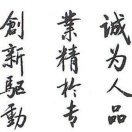 誠为人品
業精於专
創新駆動